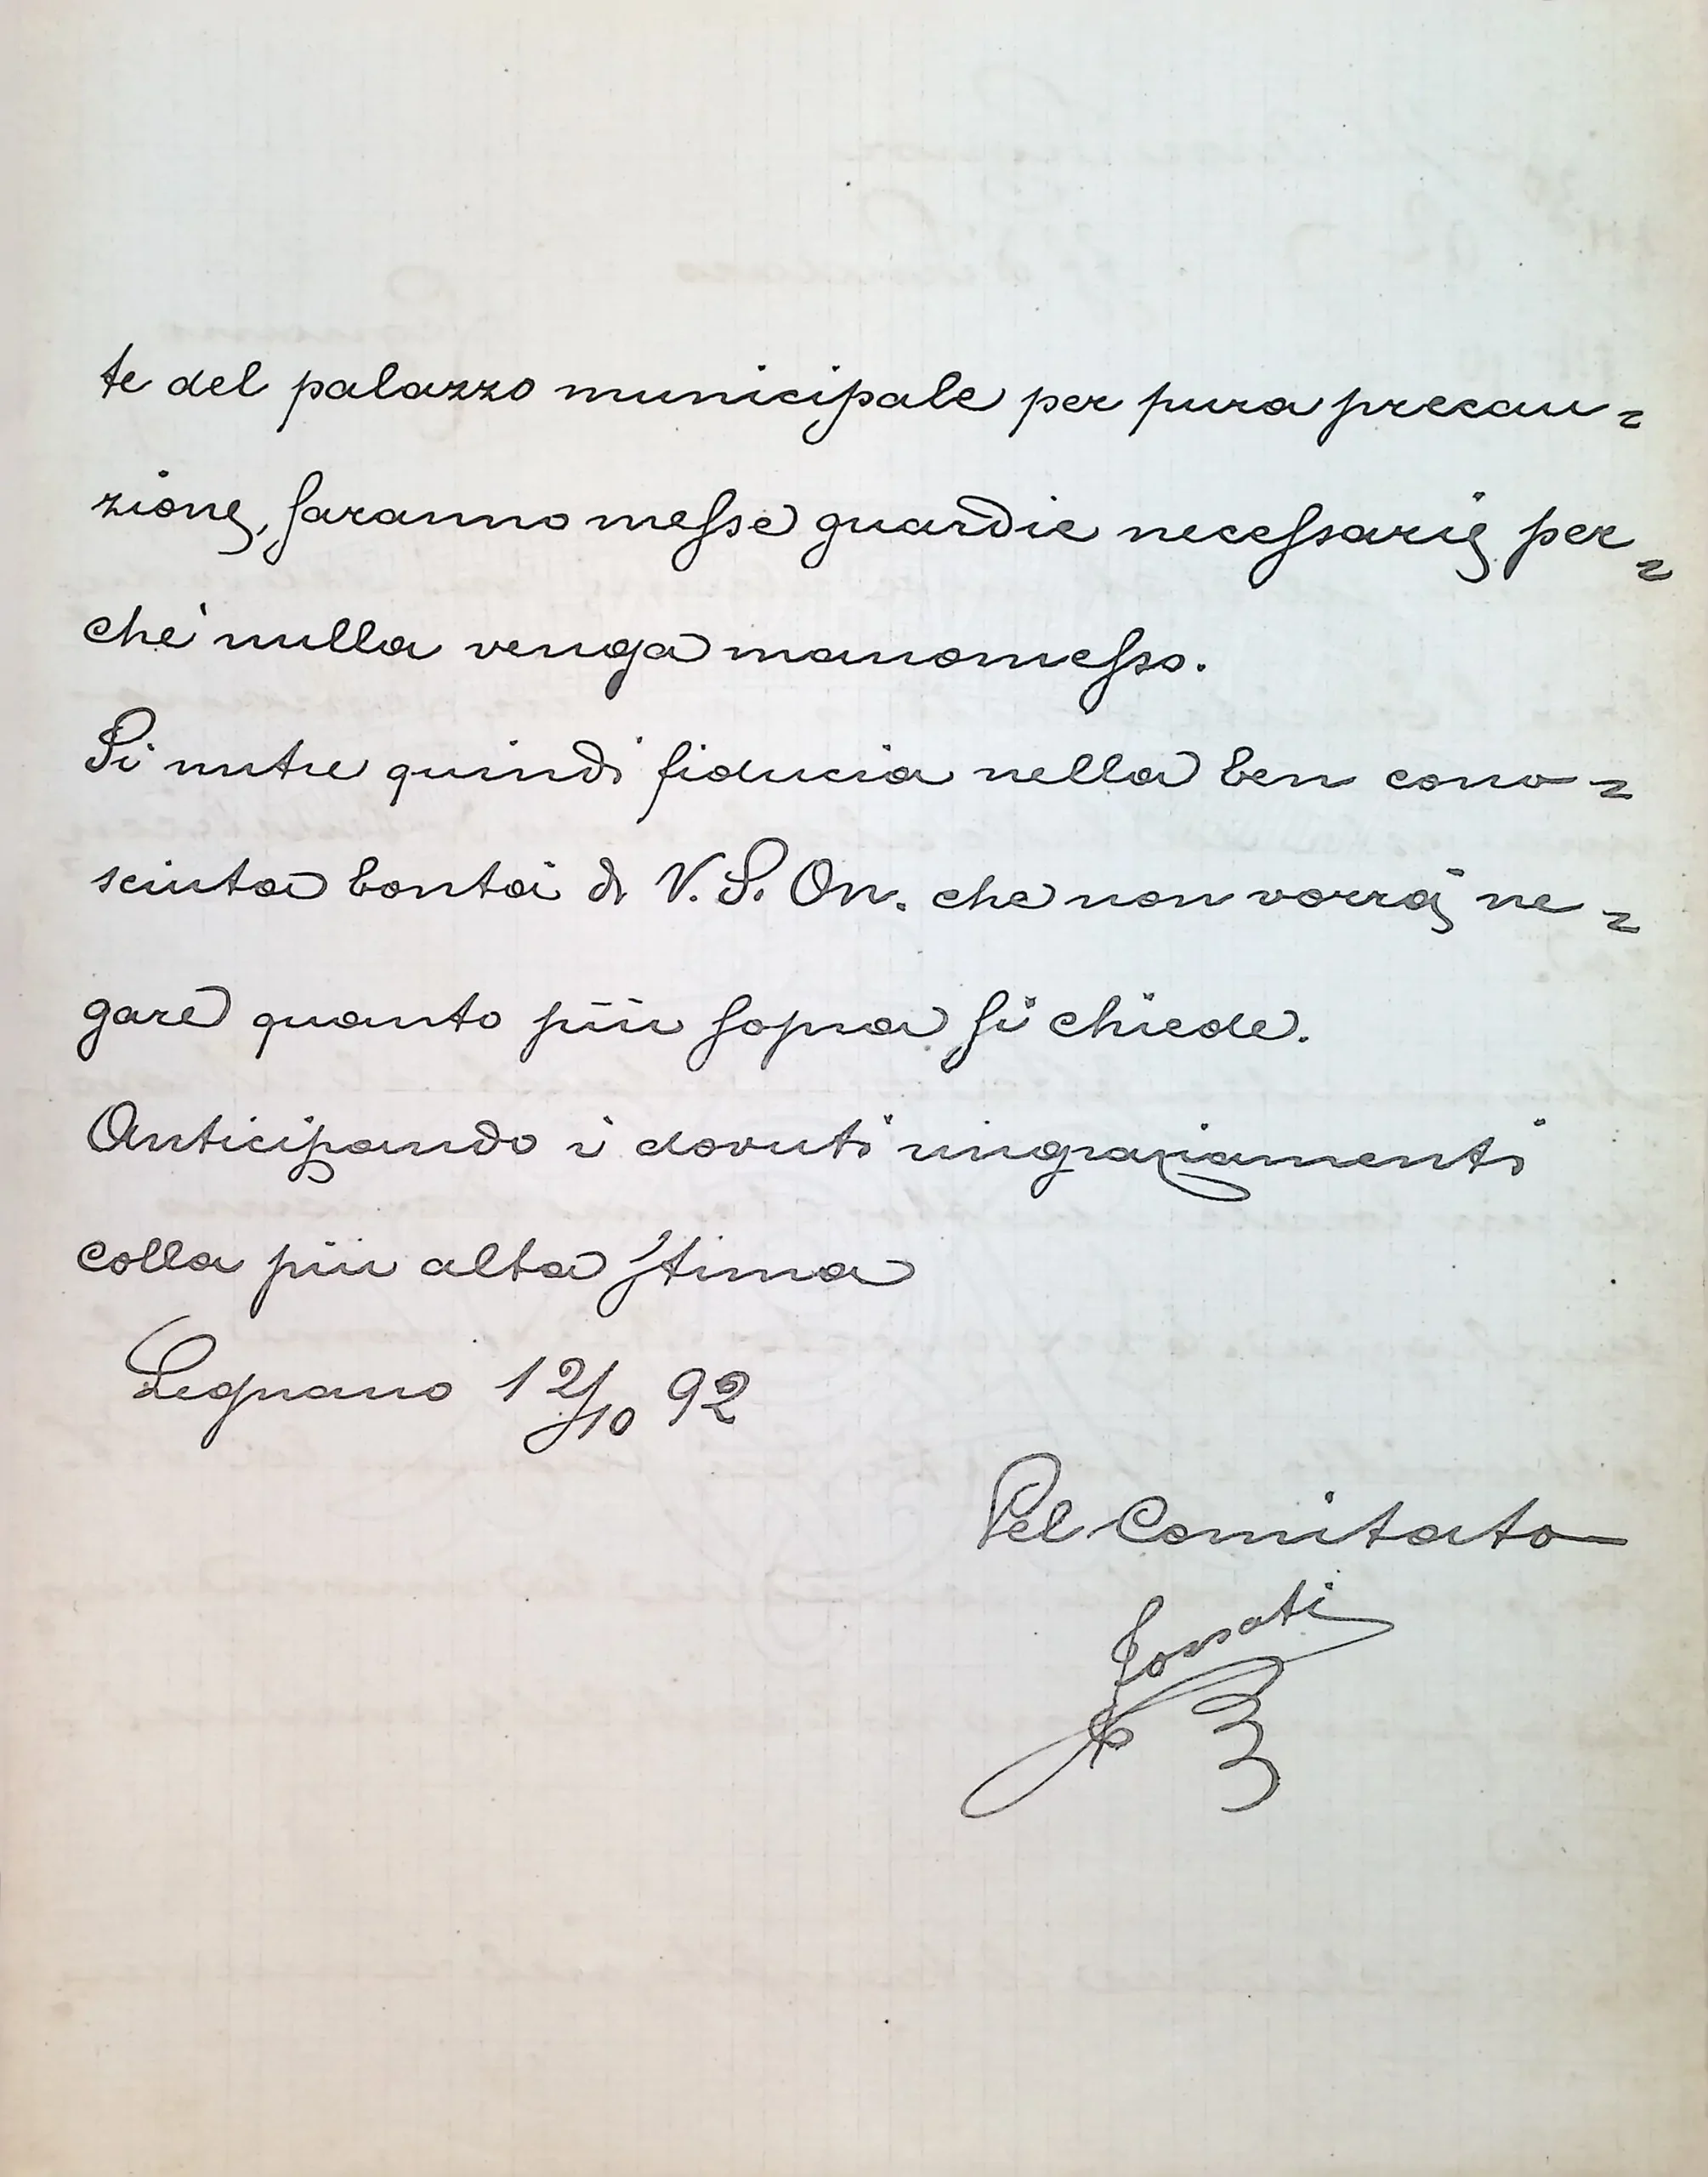 te del palazzo municipale per pura precau=
zione, saranno messe guardie necessarie per=
chè nulla venga manomesso.
Si nutre quindi fiducia nella ben cono=
sciuta bontà di V. S. On. che non vorrà ne=
gare quanto più sopra si chiede.
Anticipando i dovuti ringraziamenti
colla più alta stima
Legnano 12/10 92
Pel Comitato
Fossati